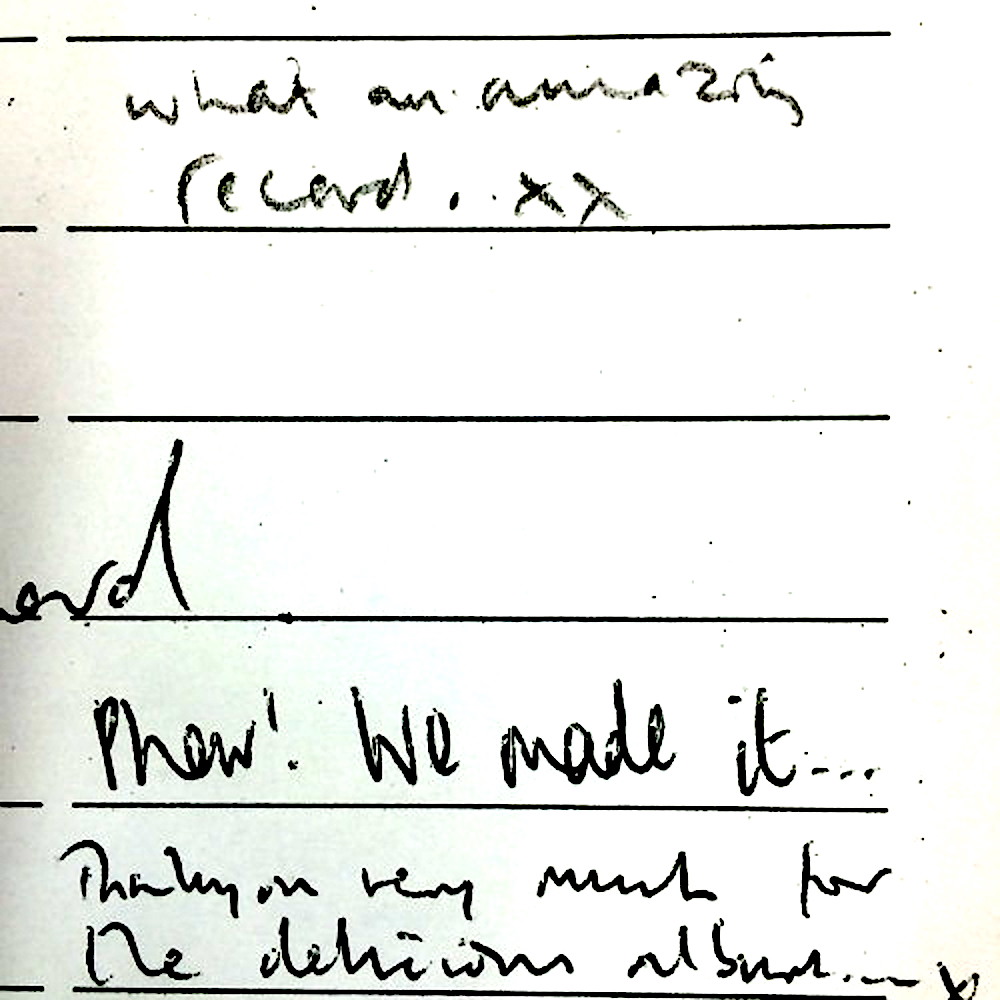 what an amazing
record. xx
Phew! We made it...
Thankyou very much for
the delicious album... x